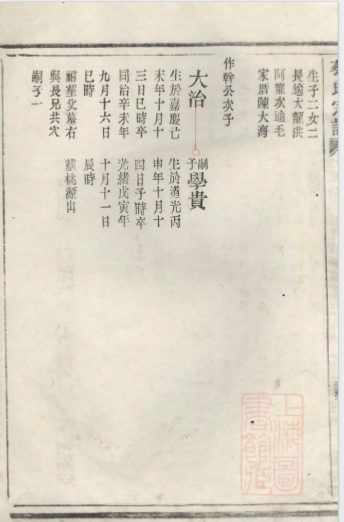 生子二女二
長適大龍洪
阿寵次適毛
家厝陳大海
作幹公次子
大治
生於嘉慶己
未年十月十
三日巳時卒
同治辛未年
九月十六日
巳時
祔葬父墓右
與長兄共穴
嗣子一
嗣子學貴
生於道光丙
申年十月十
四日子時卒
光緒戊寅年
十月十一日
辰時
葬桃源山
上海圖書館藏